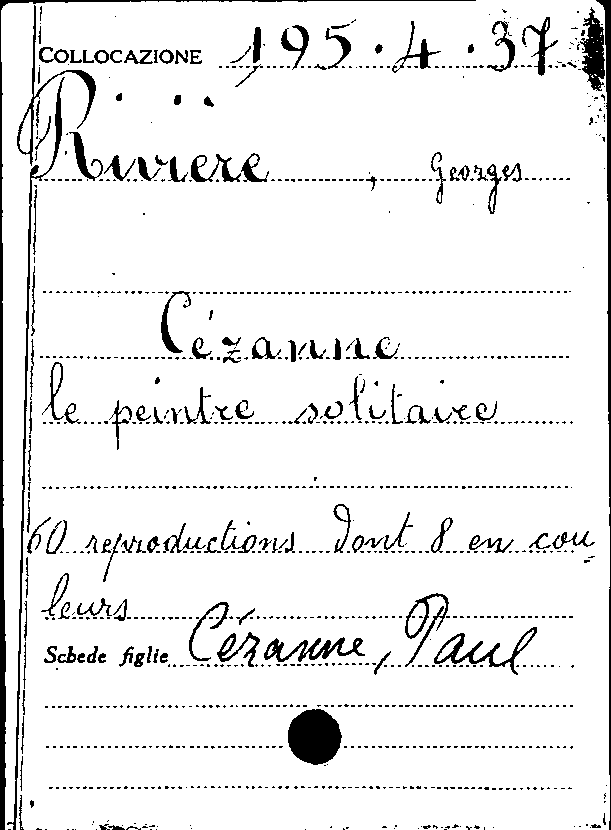 COLLOCAZIONE 195.4.37
Rivière, Georges
Cézanne
le peintre solitaire
60 reproductions dont 8 en cou-
leurs
Schede figlie Cézanne, Paul